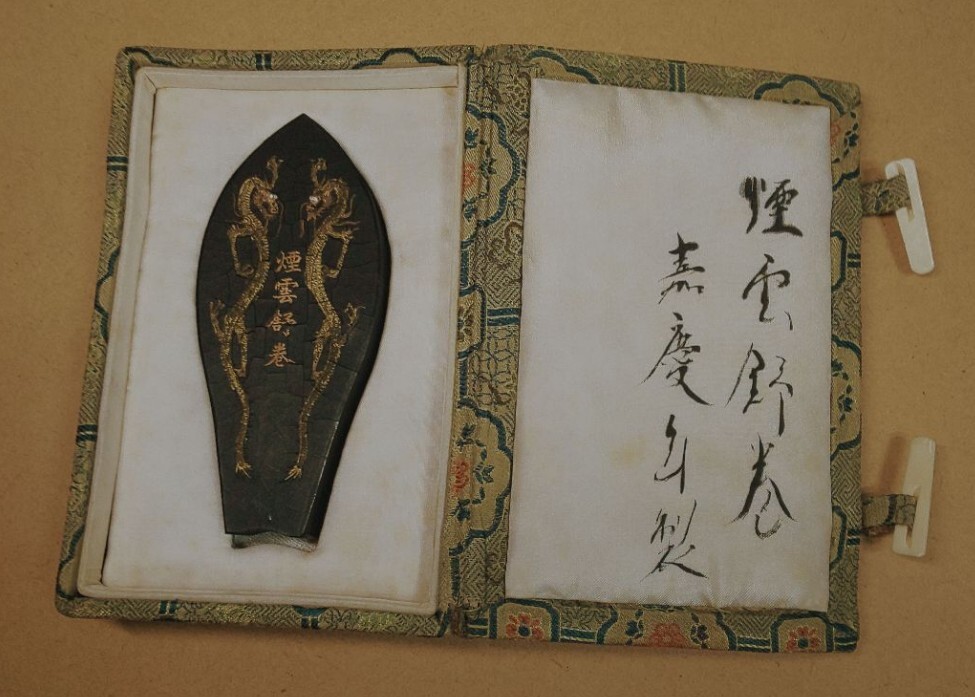 煙雲舒卷
煙雲舒卷
嘉慶年製